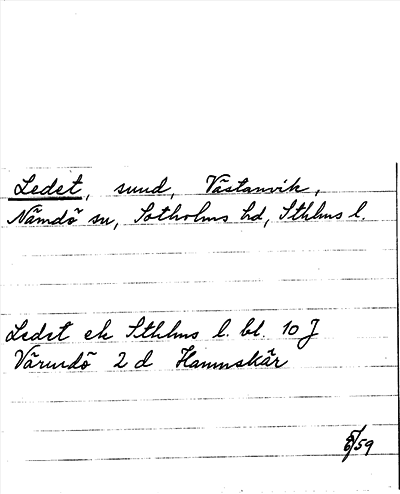 Ledet, sund, Västanvik,
Nämdö sn, Sotholms hd, Sthlms l.
Ledet ek Sthlms l. bl. 10 J
Värmdö 2 d Hamnskär
6/59